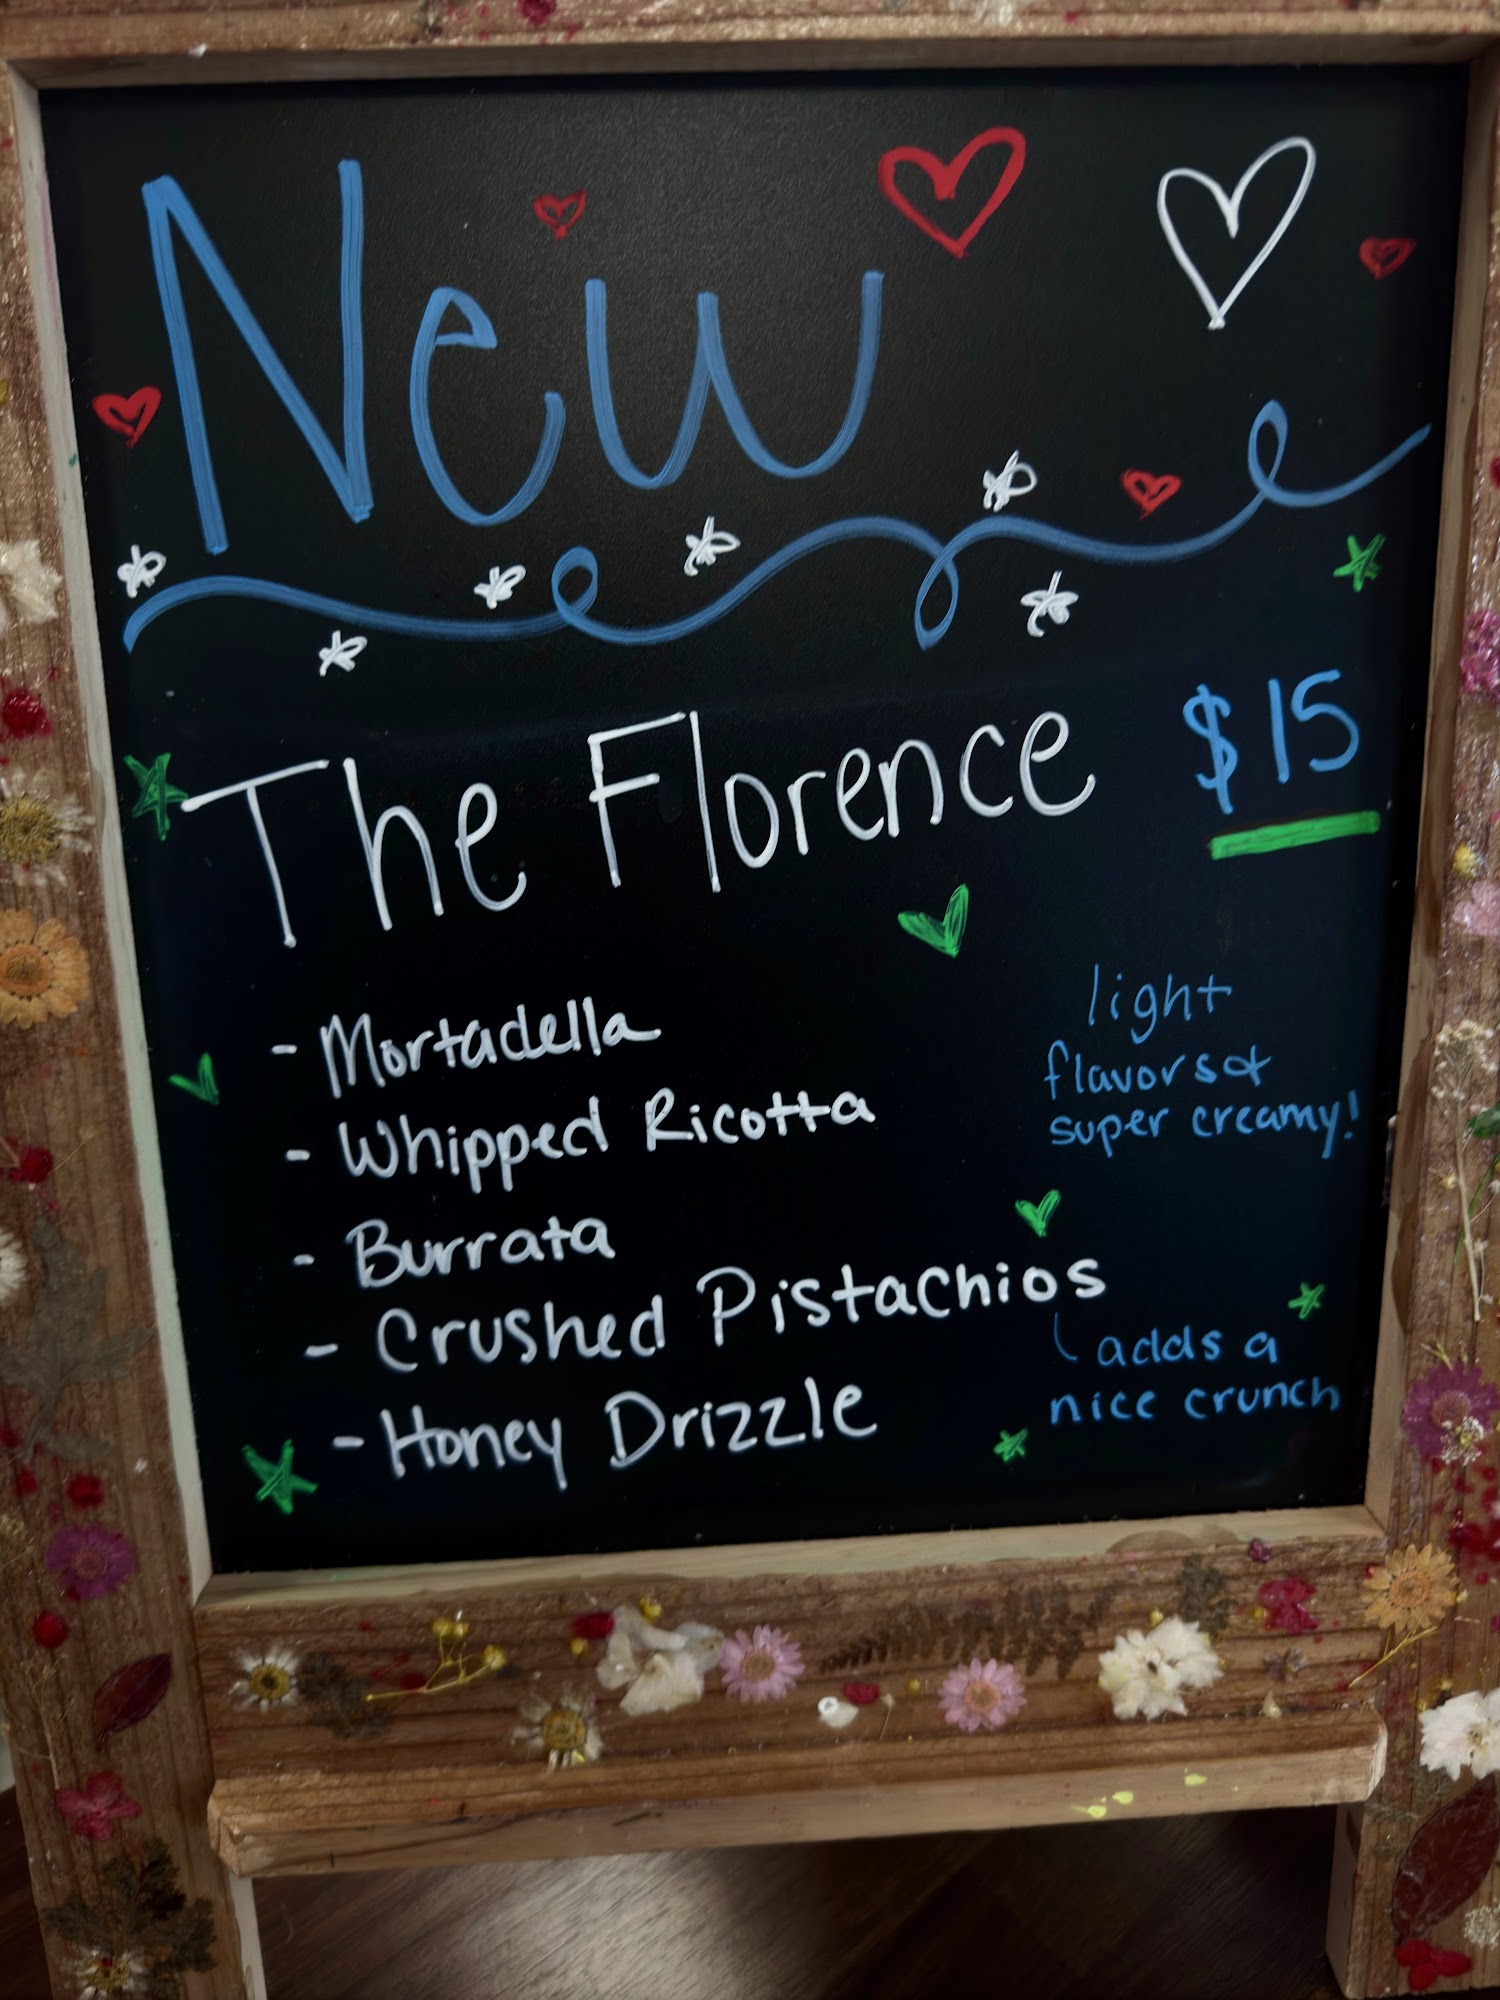 New
The Florence $15
- Mortadella
- Whipped Ricotta
- Burrata
- Crushed Pistachios
- Honey Drizzle
light
flavors &
super creamy!
adds a
nice crunch